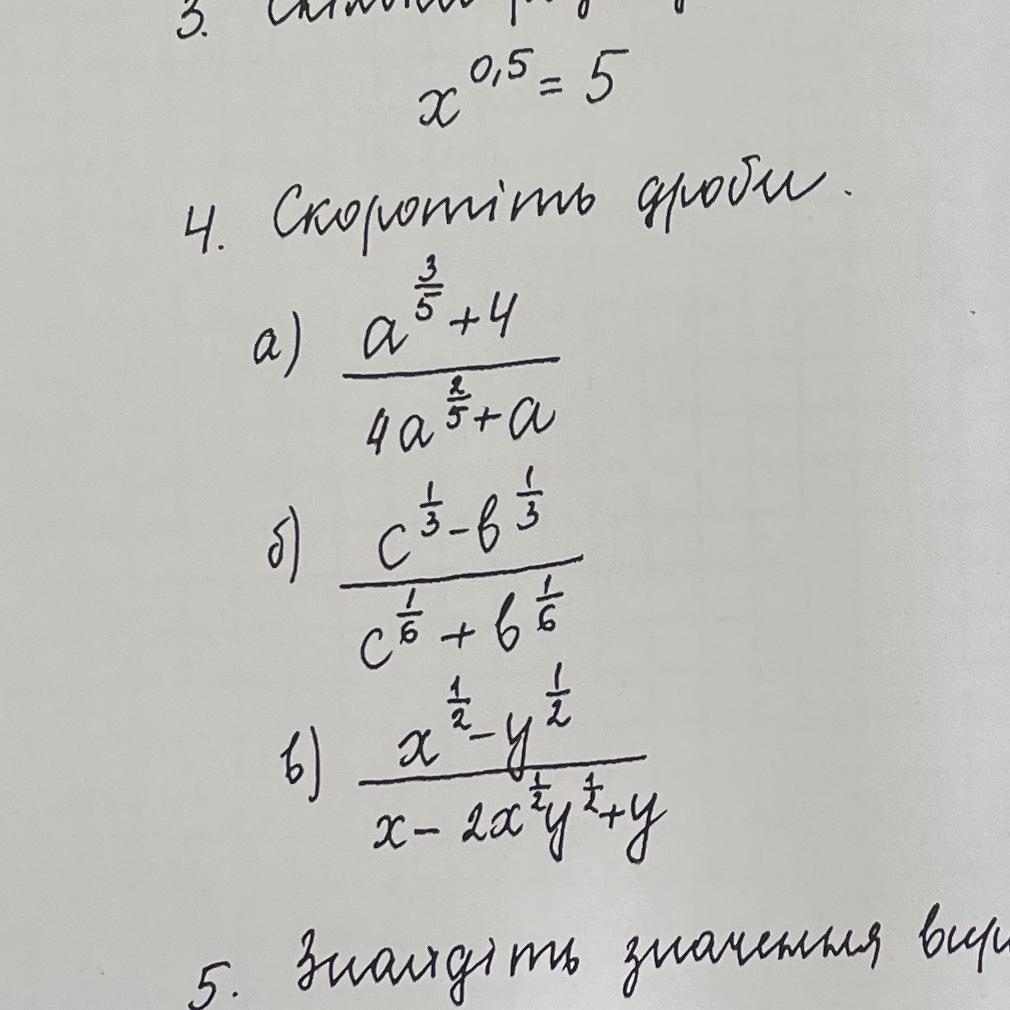 3.
x^{0,5} = 5
4. Скоротіть дроби.
а) \frac{a^{\frac{3}{5}}+4}{4a^{\frac{2}{5}}+a}
б) \frac{c^{\frac{1}{3}}-b^{\frac{1}{3}}}{c^{\frac{1}{6}}+b^{\frac{1}{6}}}
в) \frac{x^{\frac{1}{2}}-y^{\frac{1}{2}}}{x-2x^{\frac{1}{2}}y^{\frac{1}{2}}+y}
5. Знайдіть значення